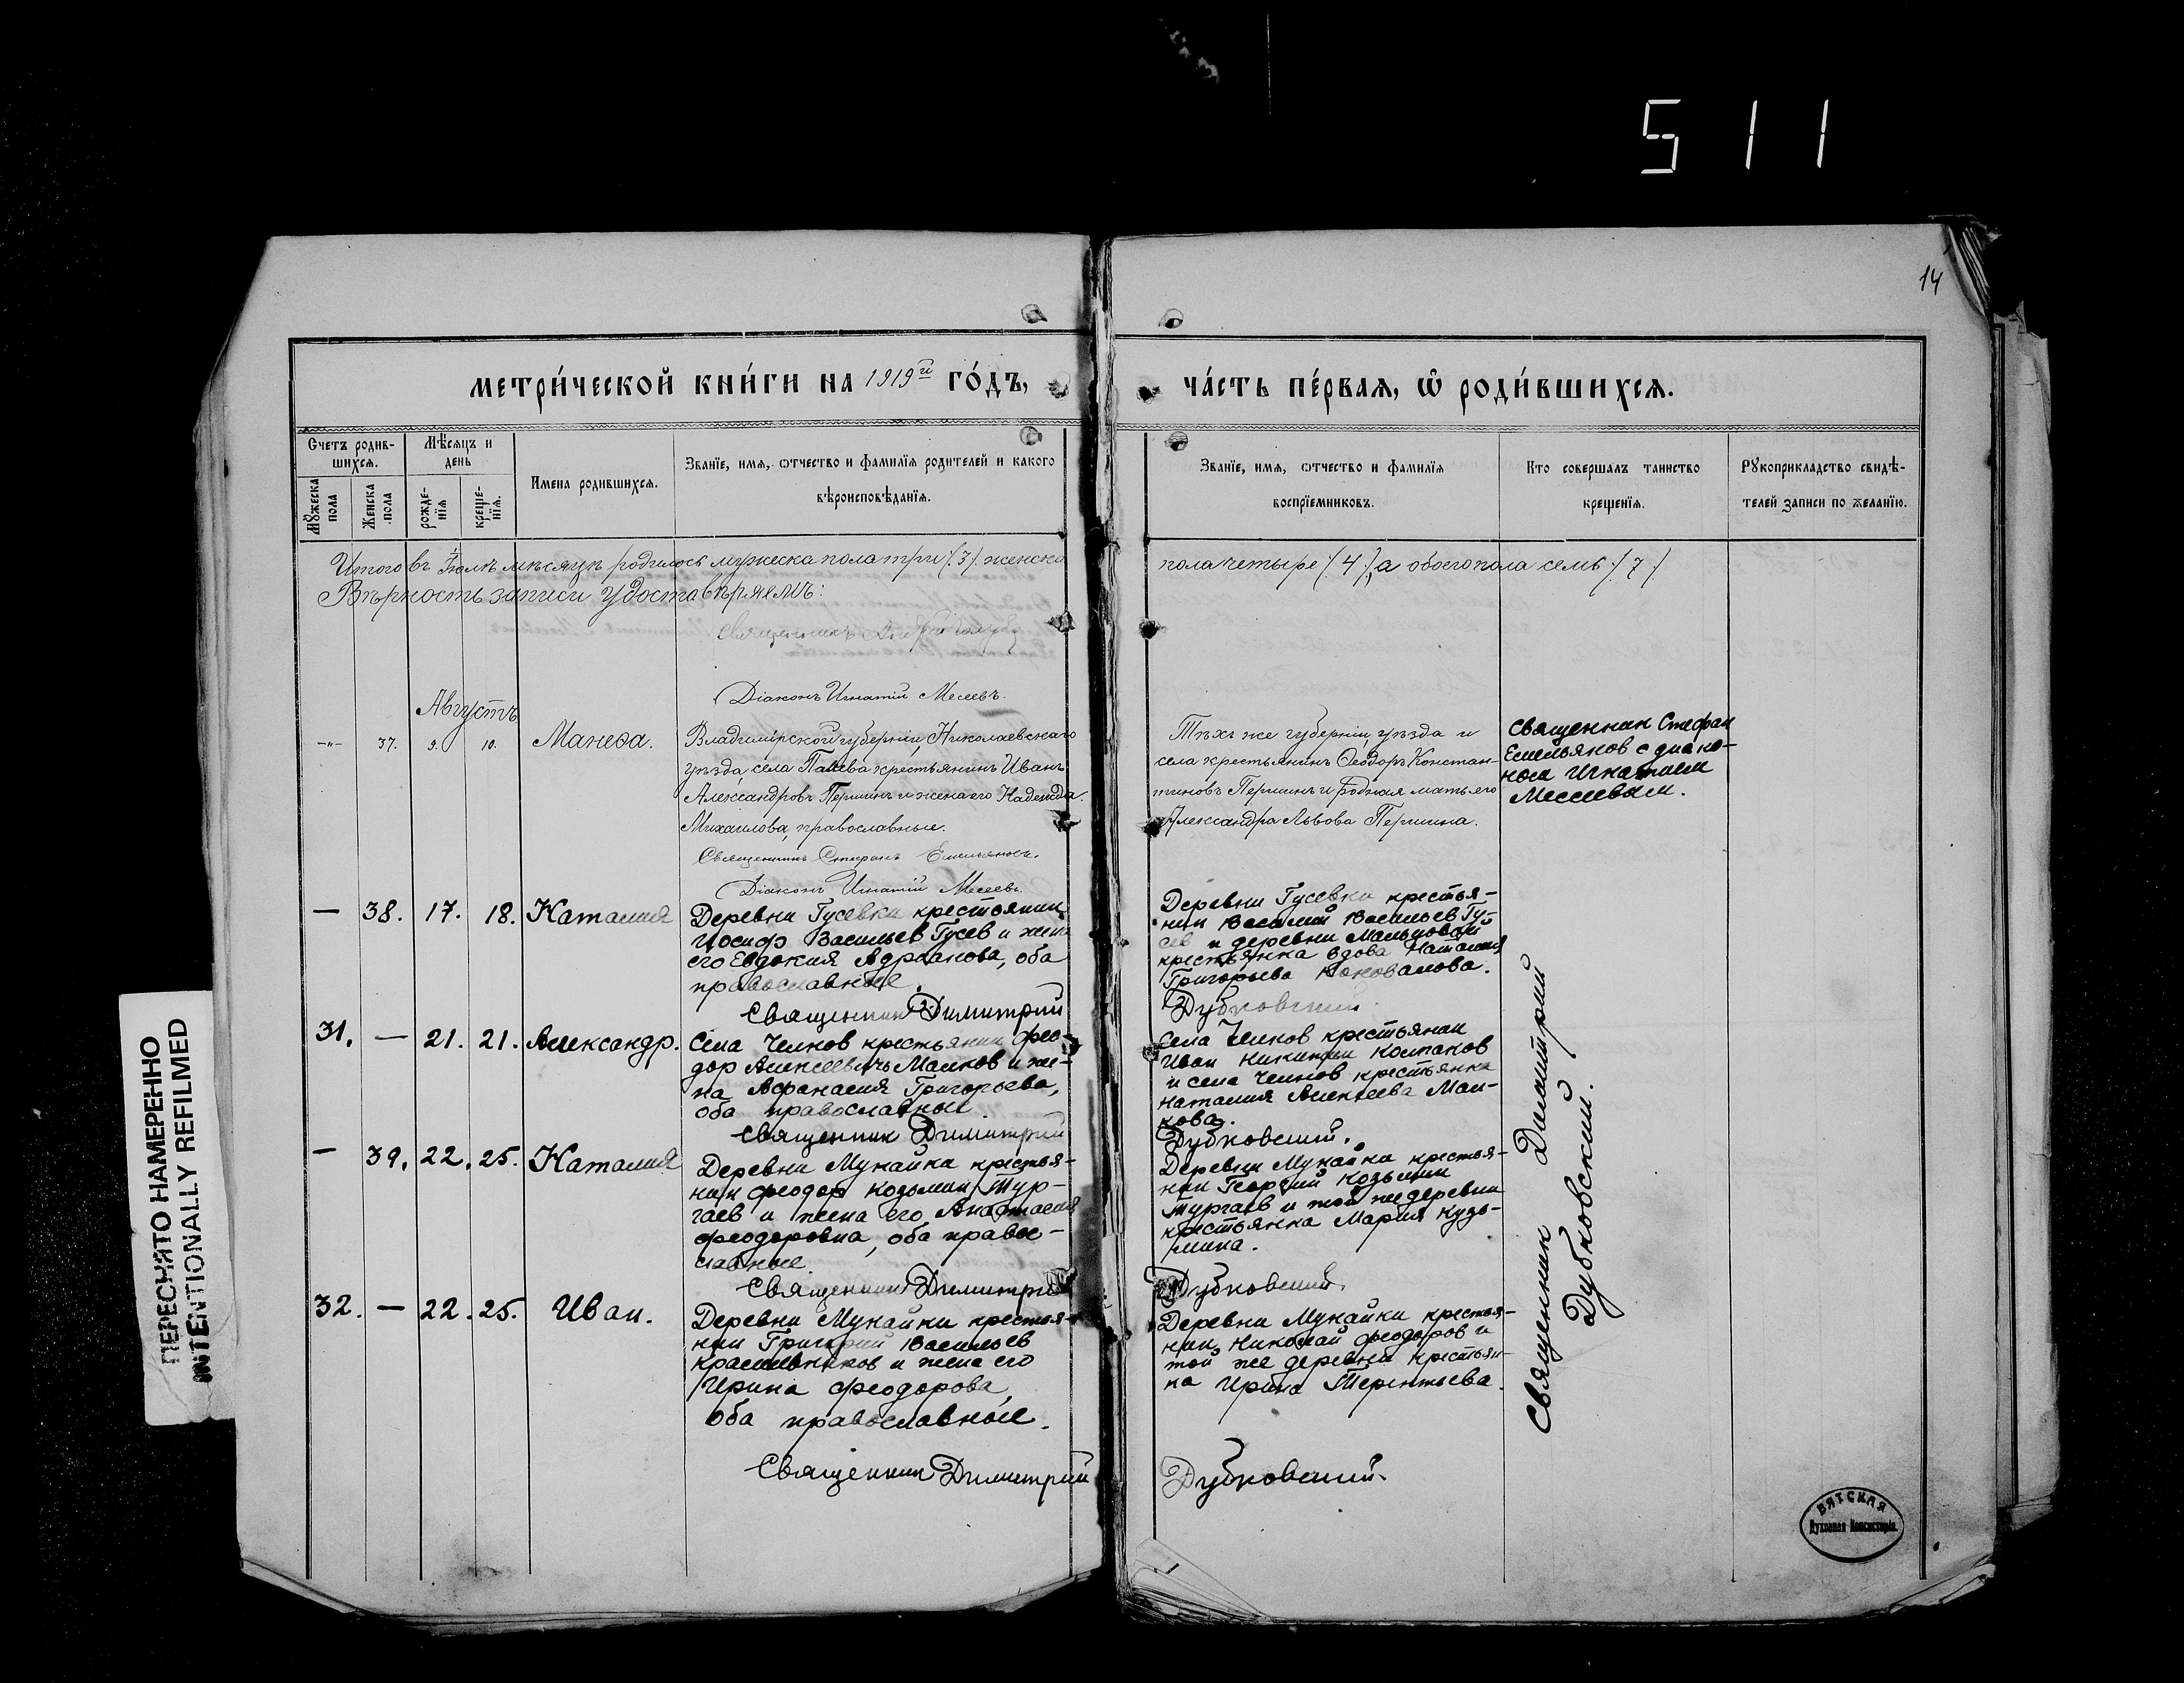 511
14
метри́ческой кни́ги на 1919й го́дъ,
ча́сть пе́рвая, ѡ҆ роди́вшихсѧ.
Счетъ родив-
шихсѧ.
Мѣсѧцъ и
день
Мꙋжеска
пола
Женска
пола
рожде-
нїѧ
креще-
нїѧ.
Имена родившихсѧ.
Званїе, имѧ, ѿтчество и фамилїѧ родителей и какого
вѣроисповѣданїѧ.
Званїе, имѧ, ѿтчество и фамилїѧ
воспрїемниковъ.
Кто совершалъ таинство
крещенїѧ.
Рꙋкоприкладство свидѣ-
телей записи по желанїю.
Итого въ Іюлѣ мѣсяцѣ родилось мужеска пола три /.3/. женска
пола четыре /.4/., а обоего пола семь /.7/.
Вѣрность записи удостовѣряемъ:
Священникъ
Діаконъ Игнатій Мелеевъ.
Августъ
-"- 37. 9. 10. Манеѳа.
Владимірской губерніи, Николаевскаго
уѣзда, села крестьянинъ Иванъ
Александровъ Першинъ и жена его Надежда
Михаилова, православные.
Священникъ Стефанъ Емельяновъ.
Діаконъ Игнатій Мелеевъ.
Тѣхъ же губерніи, уѣзда и
села крестьянинъ Ѳеодоръ Констан-
тиновъ Першинъ и родная мать его
Александра Львова Першина.
Священник Стефан
Емельянов с диако-
ном Игнатием
Мелеевым.
— 38. 17. 18. Наталия
Деревни Гусевки крестьянин
Иосиф Васильев Гусев и жена
его Евдокия Адрианова, оба
православные.
Священник Димитрий
Деревни Гусевки крестья-
нин Василий Васильев Гу-
сев и деревни Мальцовой
крестьянка вдова Наталия
Григорьева Коновалова.
Дубковский.
31. — 21. 21. Александр.
Села Челнов крестьянин Фео-
дор Алексеевичъ Малков и же-
на Афанасия Григорьева,
оба православные
Священник Димитрий
Села Челнов крестьянин
Иван Никитин Колпаков
и села Челнов крестьянка
Наталия Алексеева Мал-
кова.
Дубковский.
— 39. 22. 25. Наталия
Деревни Мунайка крестья-
нин Феодор Козьмин Тур-
гаев и жена его Анастасия
Феодоровна, оба право-
славные.
Священник Димитрий
Деревни Мунайка крестья-
нин Георгий Козьмин
Тургаев и той же деревни
крестьянка Мария Кузь-
мина.
Дубковский.
32. — 22. 25. Иван.
Деревни Мунайки крестья-
нин Григорий Васильев
Красильников и жена его
Ирина Феодорова,
оба православные.
Священник Димитрий
Деревни Мунайки крестья-
нин Николай Феодоров и
той же деревни крестьян-
ка Ирина Терентьева.
Дубковский.
Священник Димитрий
Дубковский.
ПЕРЕСНЯТО НАМЕРЕННО
INTENTIONALLY REFILMED
ВЯТСКАЯ
Духовная Консисторія.